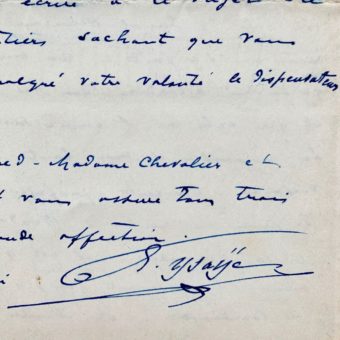 écrit à ce sujet
sachant que vous
malgré votre volonté le dispensateur
Madame Chevalier et
vous assure tous trois
affection.
E. Ysaÿe